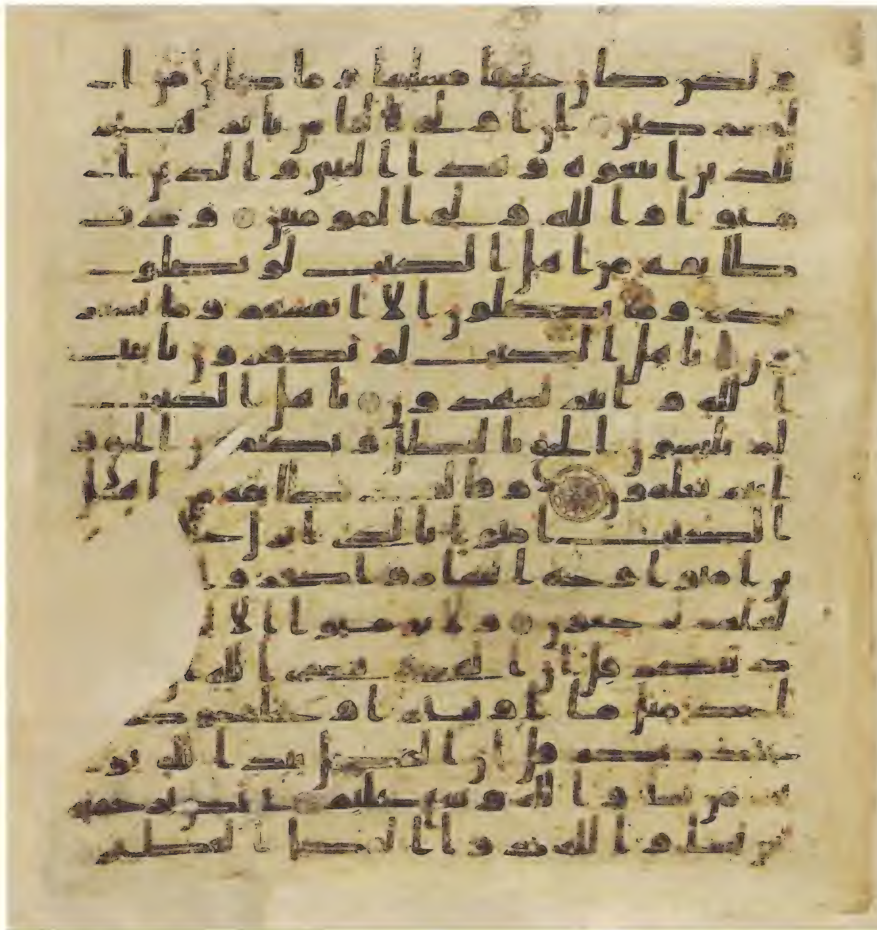 ولكن كان حنيفا مسلما وما كان من ا
لمشركين ان اولى الناس بابرهيم
للذين اتبعوه وهذا النبى والذين ا
منوا والله ولى المومنين ودت
طايفه من اهل الكتب لو يضلو
نكم وما يضلون الا انفسهم وما يشعر
ون ياهل الكتب لم تكفرون بايت
الله وانتم تشهدون ياهل الكتب
لم تلبسون الحق بالبطل وتكتمون الحق و
انتم تعلمون وقالت طايفه من اهل
الكتب امنوا بالذى انزل
ين امنوا وجه النهار واكفروا
لعلهم يرجعون ولا تومنوا الا
دينكم قل ان الهدى هدى الله
احد مثل ما اوتيتم او يحاجوكم
عند ربكم قل ان الفضل بيد الله يو
تيه من يشا والله وسع عليم يختص برحمته
من يشا والله ذو الفضل العظيم